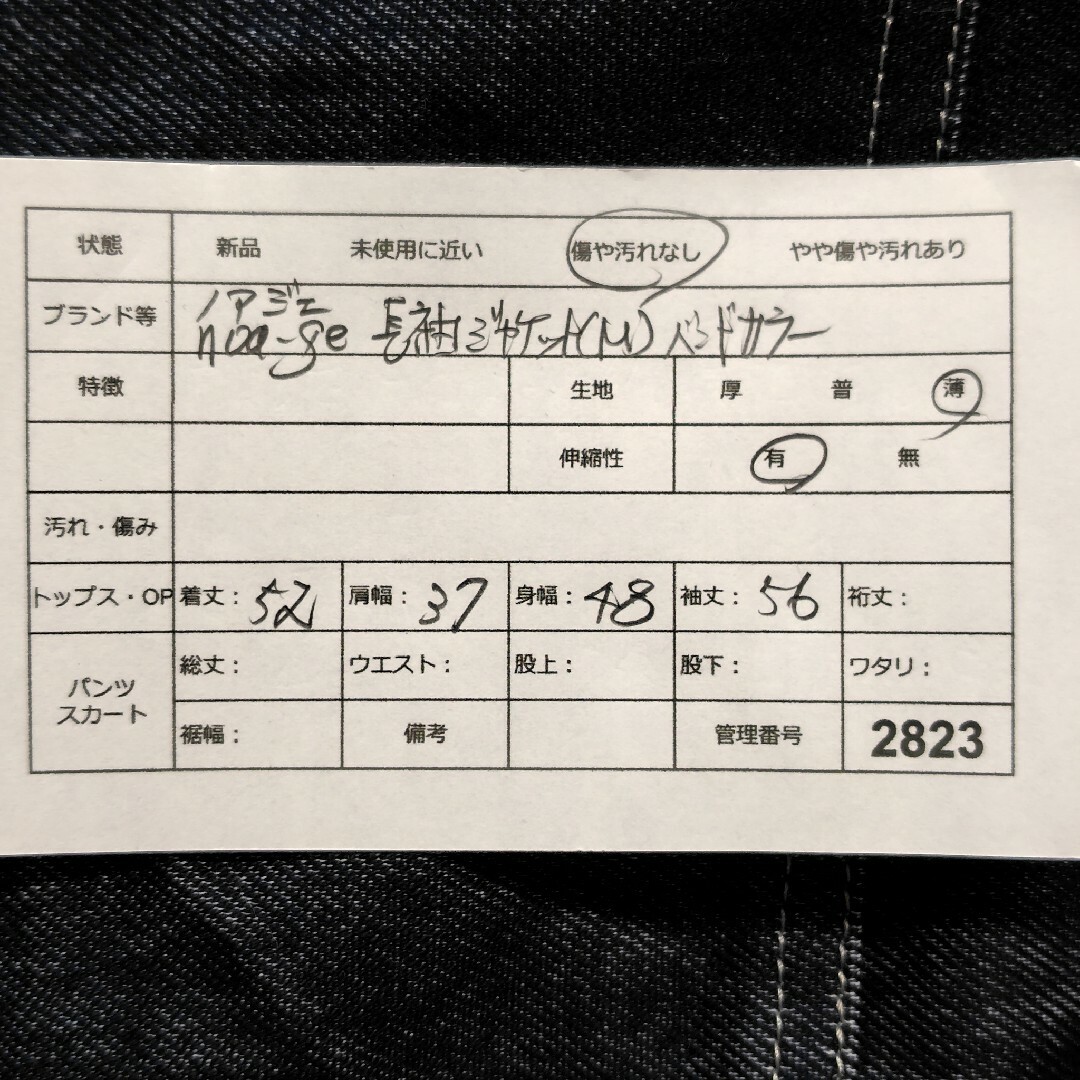 状態 新品 未使用に近い 傷や汚れなし やや傷や汚れあり
ノアジェ
ブランド等 noa-ge 長袖ジャケット(M) バンドカラー
特徴 生地 厚 普 薄
伸縮性 有 無
汚れ・傷み
トップス・OP 着丈: 52 肩幅: 37 身幅: 48 袖丈: 56 裄丈:
パンツ
スカート
総丈: ウエスト: 股上: 股下: ワタリ:
裾幅: 備考 管理番号 2823